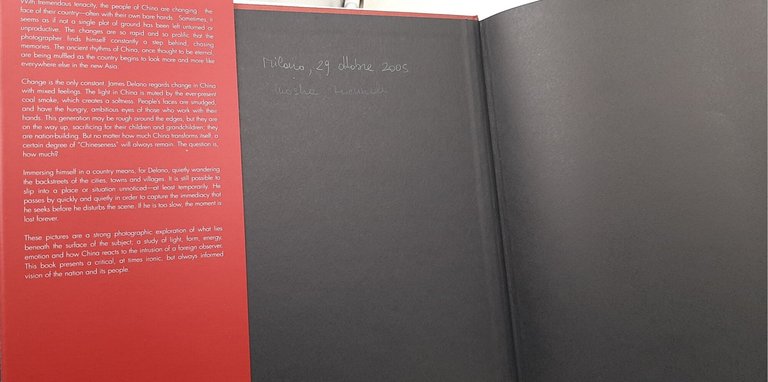 With tremendous tenacity, the people of China are changing the
face of their country—often with their own bare hands. Sometimes it
seems as if not a single plot of ground has been left unturned or
unproductive. The changes are so rapid and so prolific that the
photographer finds himself constantly a step behind, chasing
memories. The ancient rhythms of China, once thought to be eternal,
are being muffled as the country begins to look more and more like
everywhere else in the new Asia.
Change is the only constant. James Delano regards change in China
with mixed feelings. The light in China is muted by the ever-present
coal smoke, which creates a softness. People's faces are smudged,
and have the hungry, ambitious eyes of those who work with their
hands. This generation may be rough around the edges, but they are
on the way up, sacrificing for their children and grandchildren; they
are nation-building. But no matter how much China transforms itself, a
certain degree of "Chineseness" will always remain. The question is,
how much?
Immersing himself in a country means, for Delano, quietly wandering
the backstreets of the cities, towns and villages. It is still possible to
slip into a place or situation unnoticed—at least temporarily. He
passes by quickly and quietly in order to capture the immediacy that
he seeks before he disturbs the scene. If he is too slow, the moment is
lost forever.
These pictures are a strong photographic exploration of what lies
beneath the surface of the subject, a study of light, form, energy,
emotion and how China reacts to the intrusion of a foreign observer.
This book presents a critical, at times ironic, but always informed
vision of the nation and its people.
Milano, 29 ottobre 2005